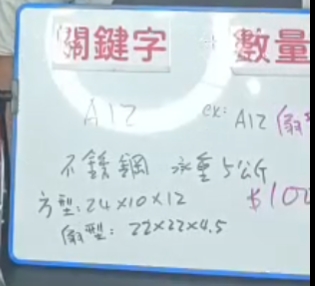 關鍵字 + 數量
A12 ex: A12 (扇
不銹鋼 承重5公斤
方型: 24×10×12 $100
扇型: 22×22×4.5